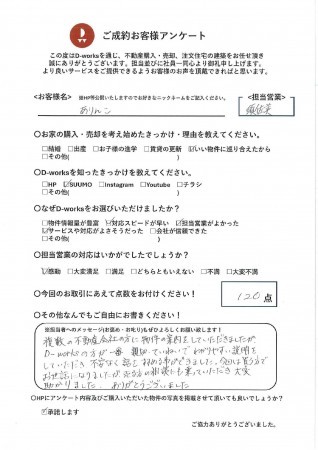 ご成約お客様アンケート
この度はD-worksを通じ、不動産購入・売却、注文住宅の建築をお任せ頂き
誠にありがとうございます。担当並びに社員一同心より御礼申し上げます。
より良いサービスをご提供できるようお客様の声を頂戴できればと思います。
<お客様名> ※HP等公開いたしますのでお好きなニックネームをご記入ください。
<担当営業>
ありんこ
〇お家の購入・売却を考え始めたきっかけ・理由を教えてください。
□結婚 □出産 □お子様の進学 □賃貸の更新 ☑いい物件に巡り合えたから
□その他( )
〇D-worksを知ったきっかけを教えてください。
□HP ☑SUUMO □Instagram □Youtube □チラシ
□その他( )
〇なぜD-worksをお選びいただけましたか？
□物件情報量が豊富 ☑対応スピードが早い ☑担当営業がよかった
☑サービスや対応がよさそうだった □会社が信頼できた
□その他( )
〇担当営業の対応はいかがでしたでしょうか？
☑感動 □大変満足 □満足 □どちらともいえない □不満 □大変不満
〇今回のお取引にあえて点数をお付けください！
120 点
〇その他なんでもご自由にお書きください！
※担当者へのメッセージ(お褒め・お叱り)もぜひよろしくお願い致します！
複数の不動産会社の方に物件の案内をしていただきましたが
D-worksの方が一番 親切、ていねいで わかりやすい説明を
していただき 不安なく話を進める事ができました。今回は買う方で
お世話になりましたが、売る方の相談にも乗っていただき大変
助かりました。ありがとうございました
〇HPにアンケート内容及びご購入いただいた物件の写真を掲載させて頂いても良いでしょうか？
☑承諾します
ご協力ありがとうございました。